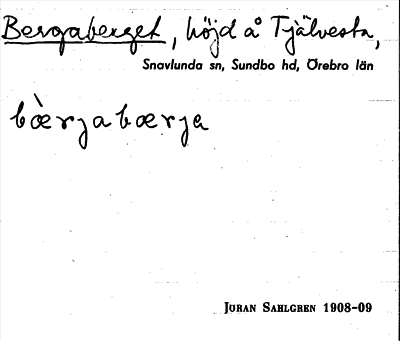 Bergaberget, höjd å Tjälvesta,
Snavlunda sn, Sundbo hd, Örebro län
bæ̀rjabærja
Jöran Sahlgren 1908-09